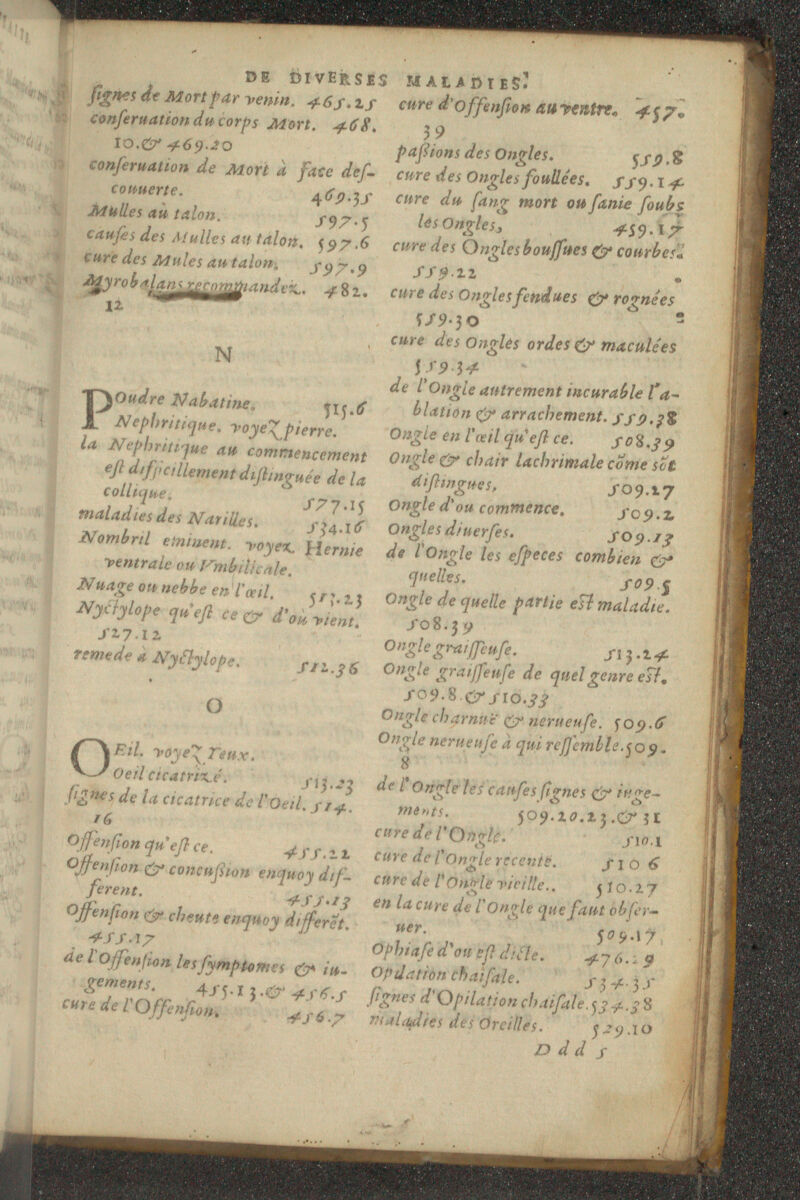 DE DIVERSES MALADIES.
ſignes de Mort par venin. 465.25
conſeruation du corps Mort. 468.
10.& 469.20
conſeruation de Mort à face deſ-
couuerte. 469.35
Mulles au talon. 597.5
cauſes des Mulles au talon. 597.6
cure des Mules au talon. 597.9
Myrobalans recommandez. 482.
12
N
POudre Nabatine. 515.6
Nephritique. voyez pierre.
la Nephritique au commencement
eſt difficillement diſtinguée de la
collique. 577.15
maladies des Narilles. 534.16
Nombril eminent. voyez Hernie
ventrale ou Vmbilicale.
Nuage ou nebbe en l'œil. 513.23
Nyctylope qu'eſt ce & d'où vient.
527.12
remede à Nyctylope. 512.36
O
OEil. voyez Yeux.
Oeil cicatrizé. 513.23
ſignes de la cicatrice de l'Oeil. 514.
16
Offenſion qu'eſt ce. 455.21
Offenſion & concuſsion enquoy dif-
ferent. 455.13
Offenſion & cheute enquoy differēt.
455.17
de l'Offenſion les ſymptomes & iu-
gements. 455.13.& 456.5
cure de l'Offenſion. 456.7
cure d'Offenſion au ventre. 457.
39
paſsions des Ongles. 559.8
cure des Ongles foullées. 559.14
cure du ſang mort ou ſanie ſoubs
les Ongles, 459.17
cure des Ongles bouſſues & courbes.
559.22
cure des Ongles fendues & rognées
559.30
cure des Ongles ordes & maculées
559.34
de l'Ongle autrement incurable l'a-
blation & arrachement. 559.38
Ongle en l'œil qu'eſt ce. 508.39
Ongle & chair lachrimale cōme sōt
diſtingues, 509.17
Ongle d'ou commence. 509.2
Ongles diuerſes. 509.13
de l'Ongle les eſpeces combien &
quelles. 509.5
Ongle de quelle partie eſt maladie.
508.39
Ongle graiſſeuſe. 513.24
Ongle graiſſeuſe de quel genre eſt.
509.8.& 510.33
Ongle charnuë & nerueuſe. 509.6
Ongle nerueuſe à qui reſſemble. 509.
8
de l'Ongle les cauſes ſignes & iuge-
ments. 509.20.23.& 31
cure de l'Ongle. 510.1
cure de l'Ongle recente. 510 6
cure de l'Ongle vieille.. 510.27
en la cure de l'Ongle que faut obſer-
uer. 509.17
Ophiaſe d'ou eſt dicte. 476.29
Opilation chaiſale. 534.35
ſignes d'Opilation chaiſale. 534.38
maladies des Oreilles. 529.10
D d d 5